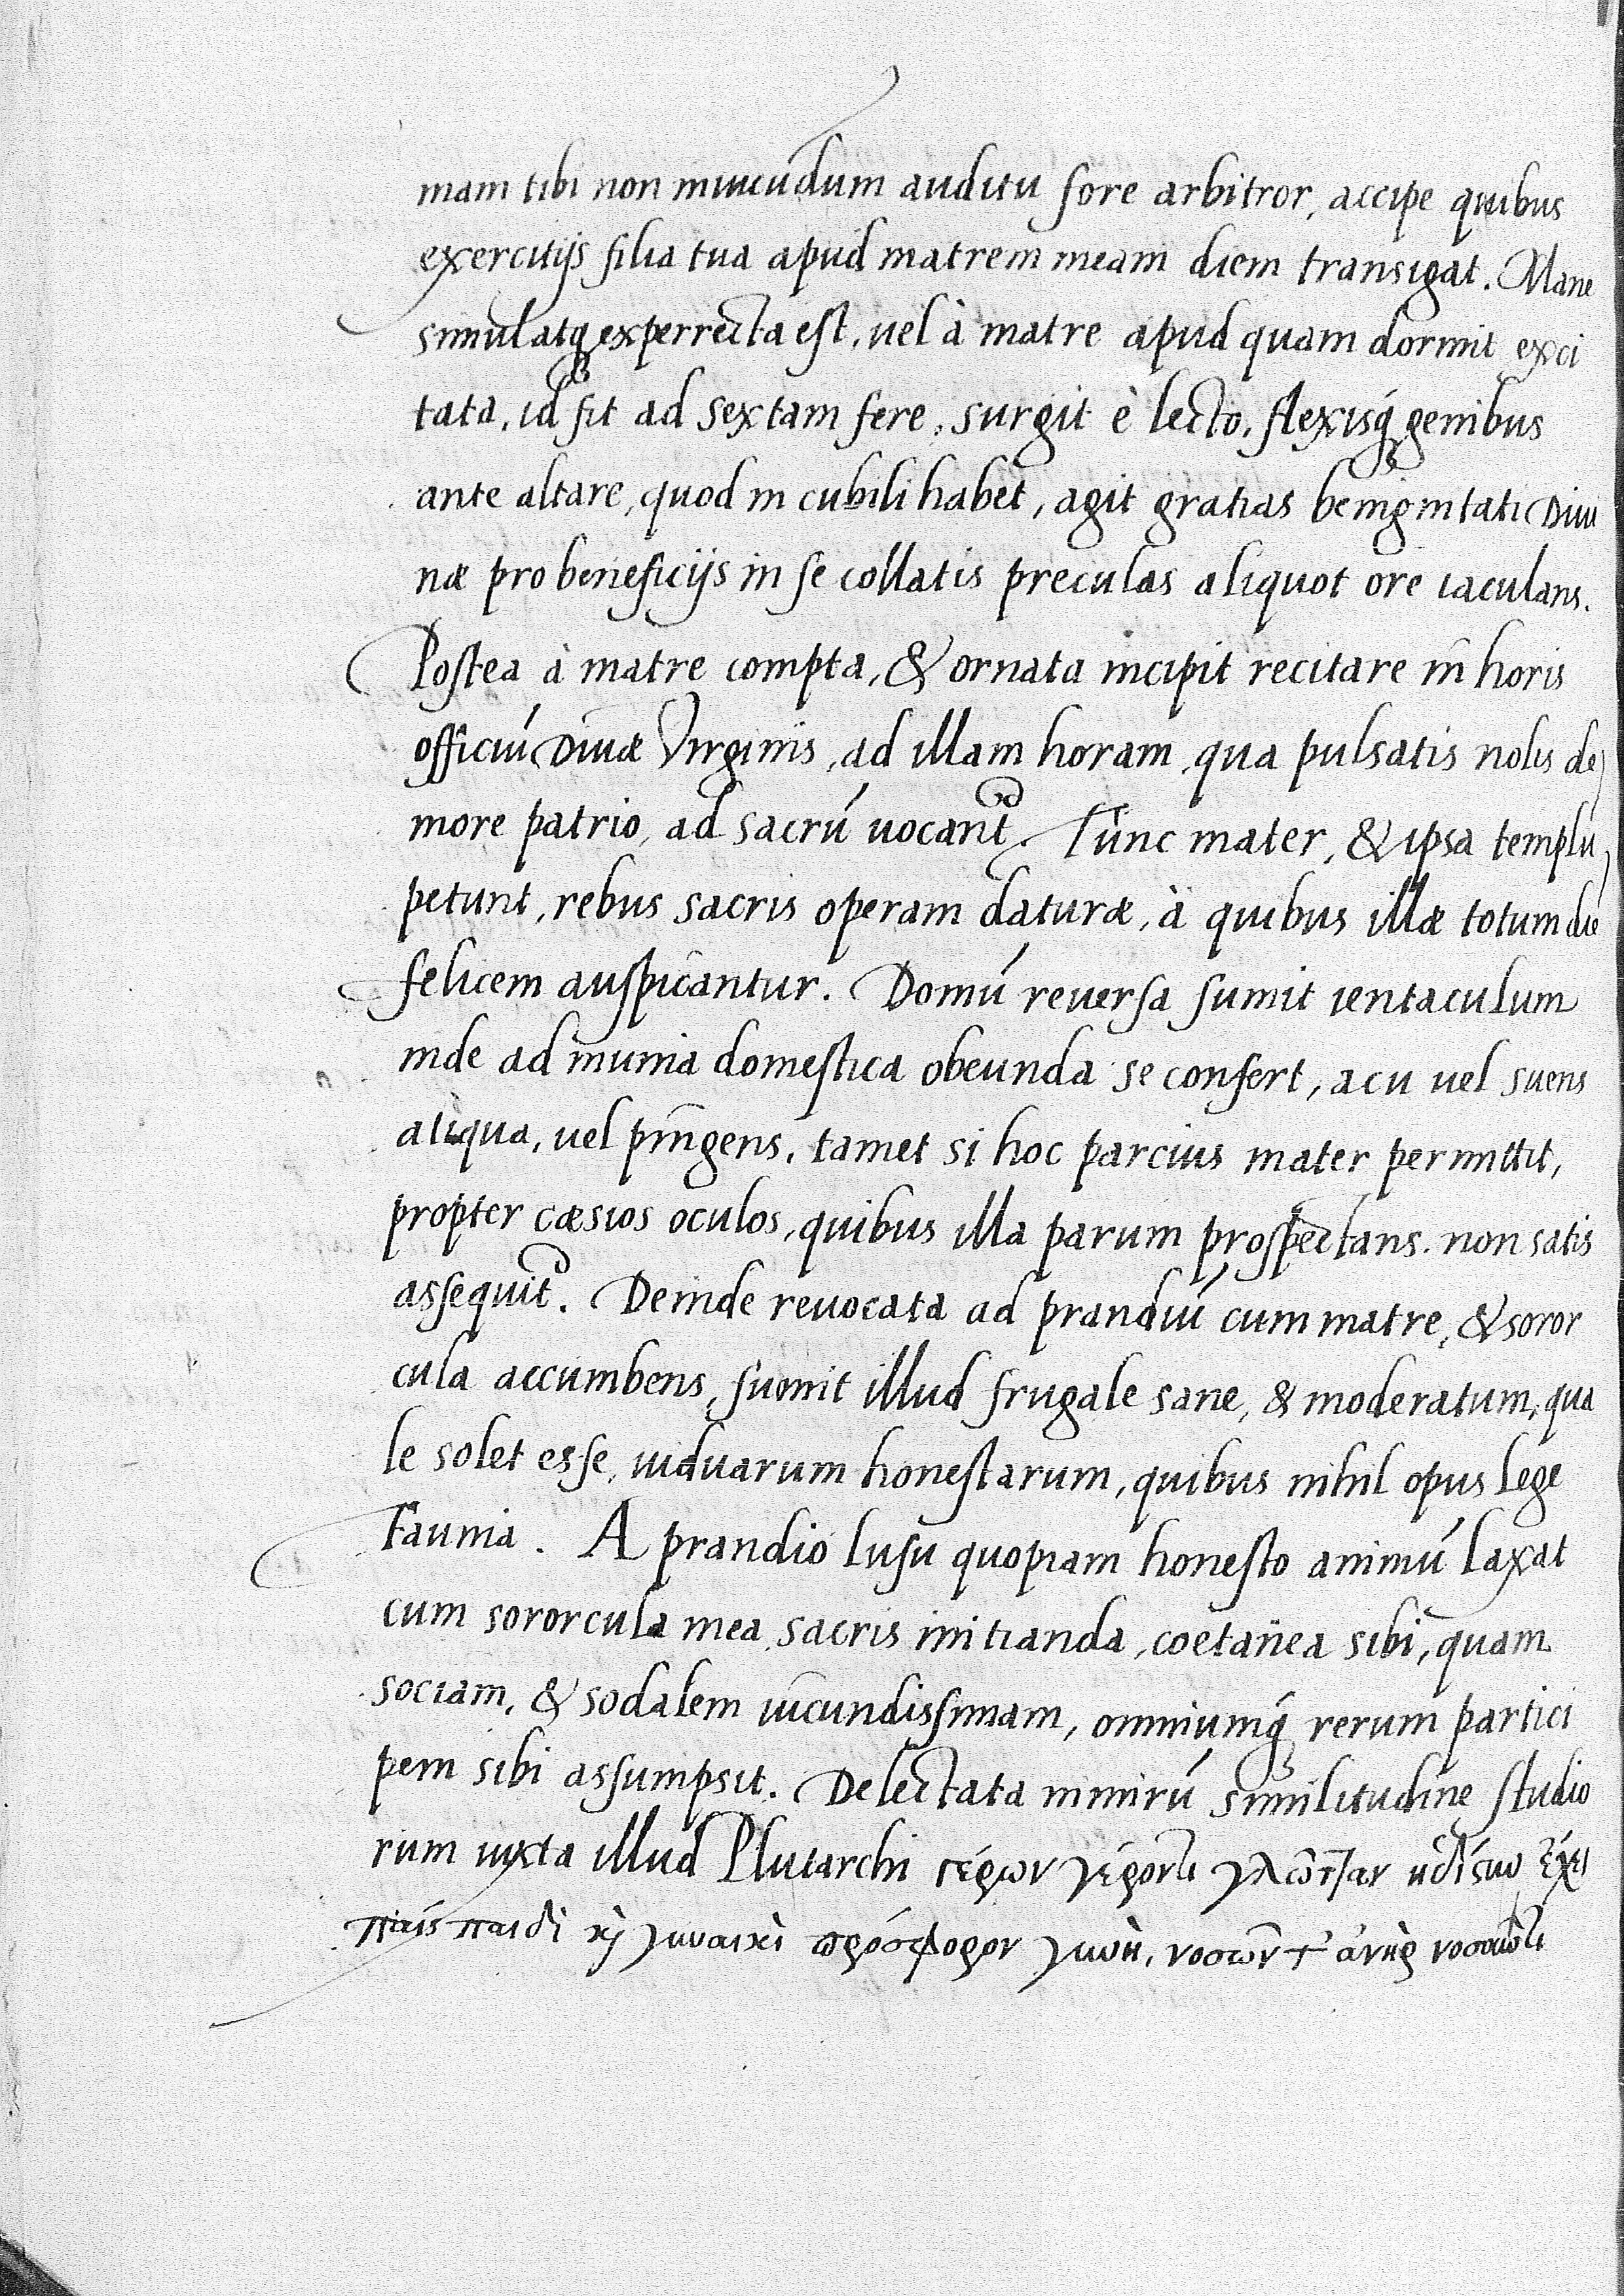 mam tibi non iniucúdum auditu fore arbitror, accipe quibus
exercitijs filia tua apud matrem meam diem transigat. Mane
simulatq́ experrecta est, uel à matre apud quam dormit exci
tata, id fit ad sextam fere, surgit è lecto, flexisq́ genibus
ante altare, quod in cubili habet, agit gratias benignitati Diui
næ pro beneficijs in se collatis preculas aliquot ore iaculans.
Postea à matre compta, & ornata incipit recitare in horis
officiú Diuæ Virginis, ad illam horam, qua pulsatis nolis de
more patrio, ad sacrú uocant᷑. Tunc mater, & ipsa templũ
petunt, rebus sacris operam daturæ, à quibus illæ totum diẽ
felicem auspicantur. Domú reuersa sumit ientaculum
inde ad munia domestica obeunda se confert, acu uel suens
aliqua, uel pingens, tamet si hoc parcius mater permittit,
propter cæsios oculos, quibus illa parum prospectans. non satis
assequit᷑. Deinde reuocata ad prandiú cum matre, & soror
cula accumbens, sumit illud frugale sane, & moderatum, qua
le solet esse, uiduarum honestarum, quibus nihil opus lege
Faunia. A prandio lusu quopiam honesto animú laxat
cum sororcula mea sacris initianda, coetanea sibi, quam
sociam, & sodalem iucundissimam, omniumq́ rerum partici
pem sibi assumpsit. Delectata nimirú similitudine studio
rum iuxta illud Plutarchi γέρων γέροντι γλῶτταν ἡδίστην ἔχει
παῖς παιδὶ καὶ γυναικὶ πρόσφορον γυνὴ, νοσῶν τ' ἀνὴρ νοσοῦντι